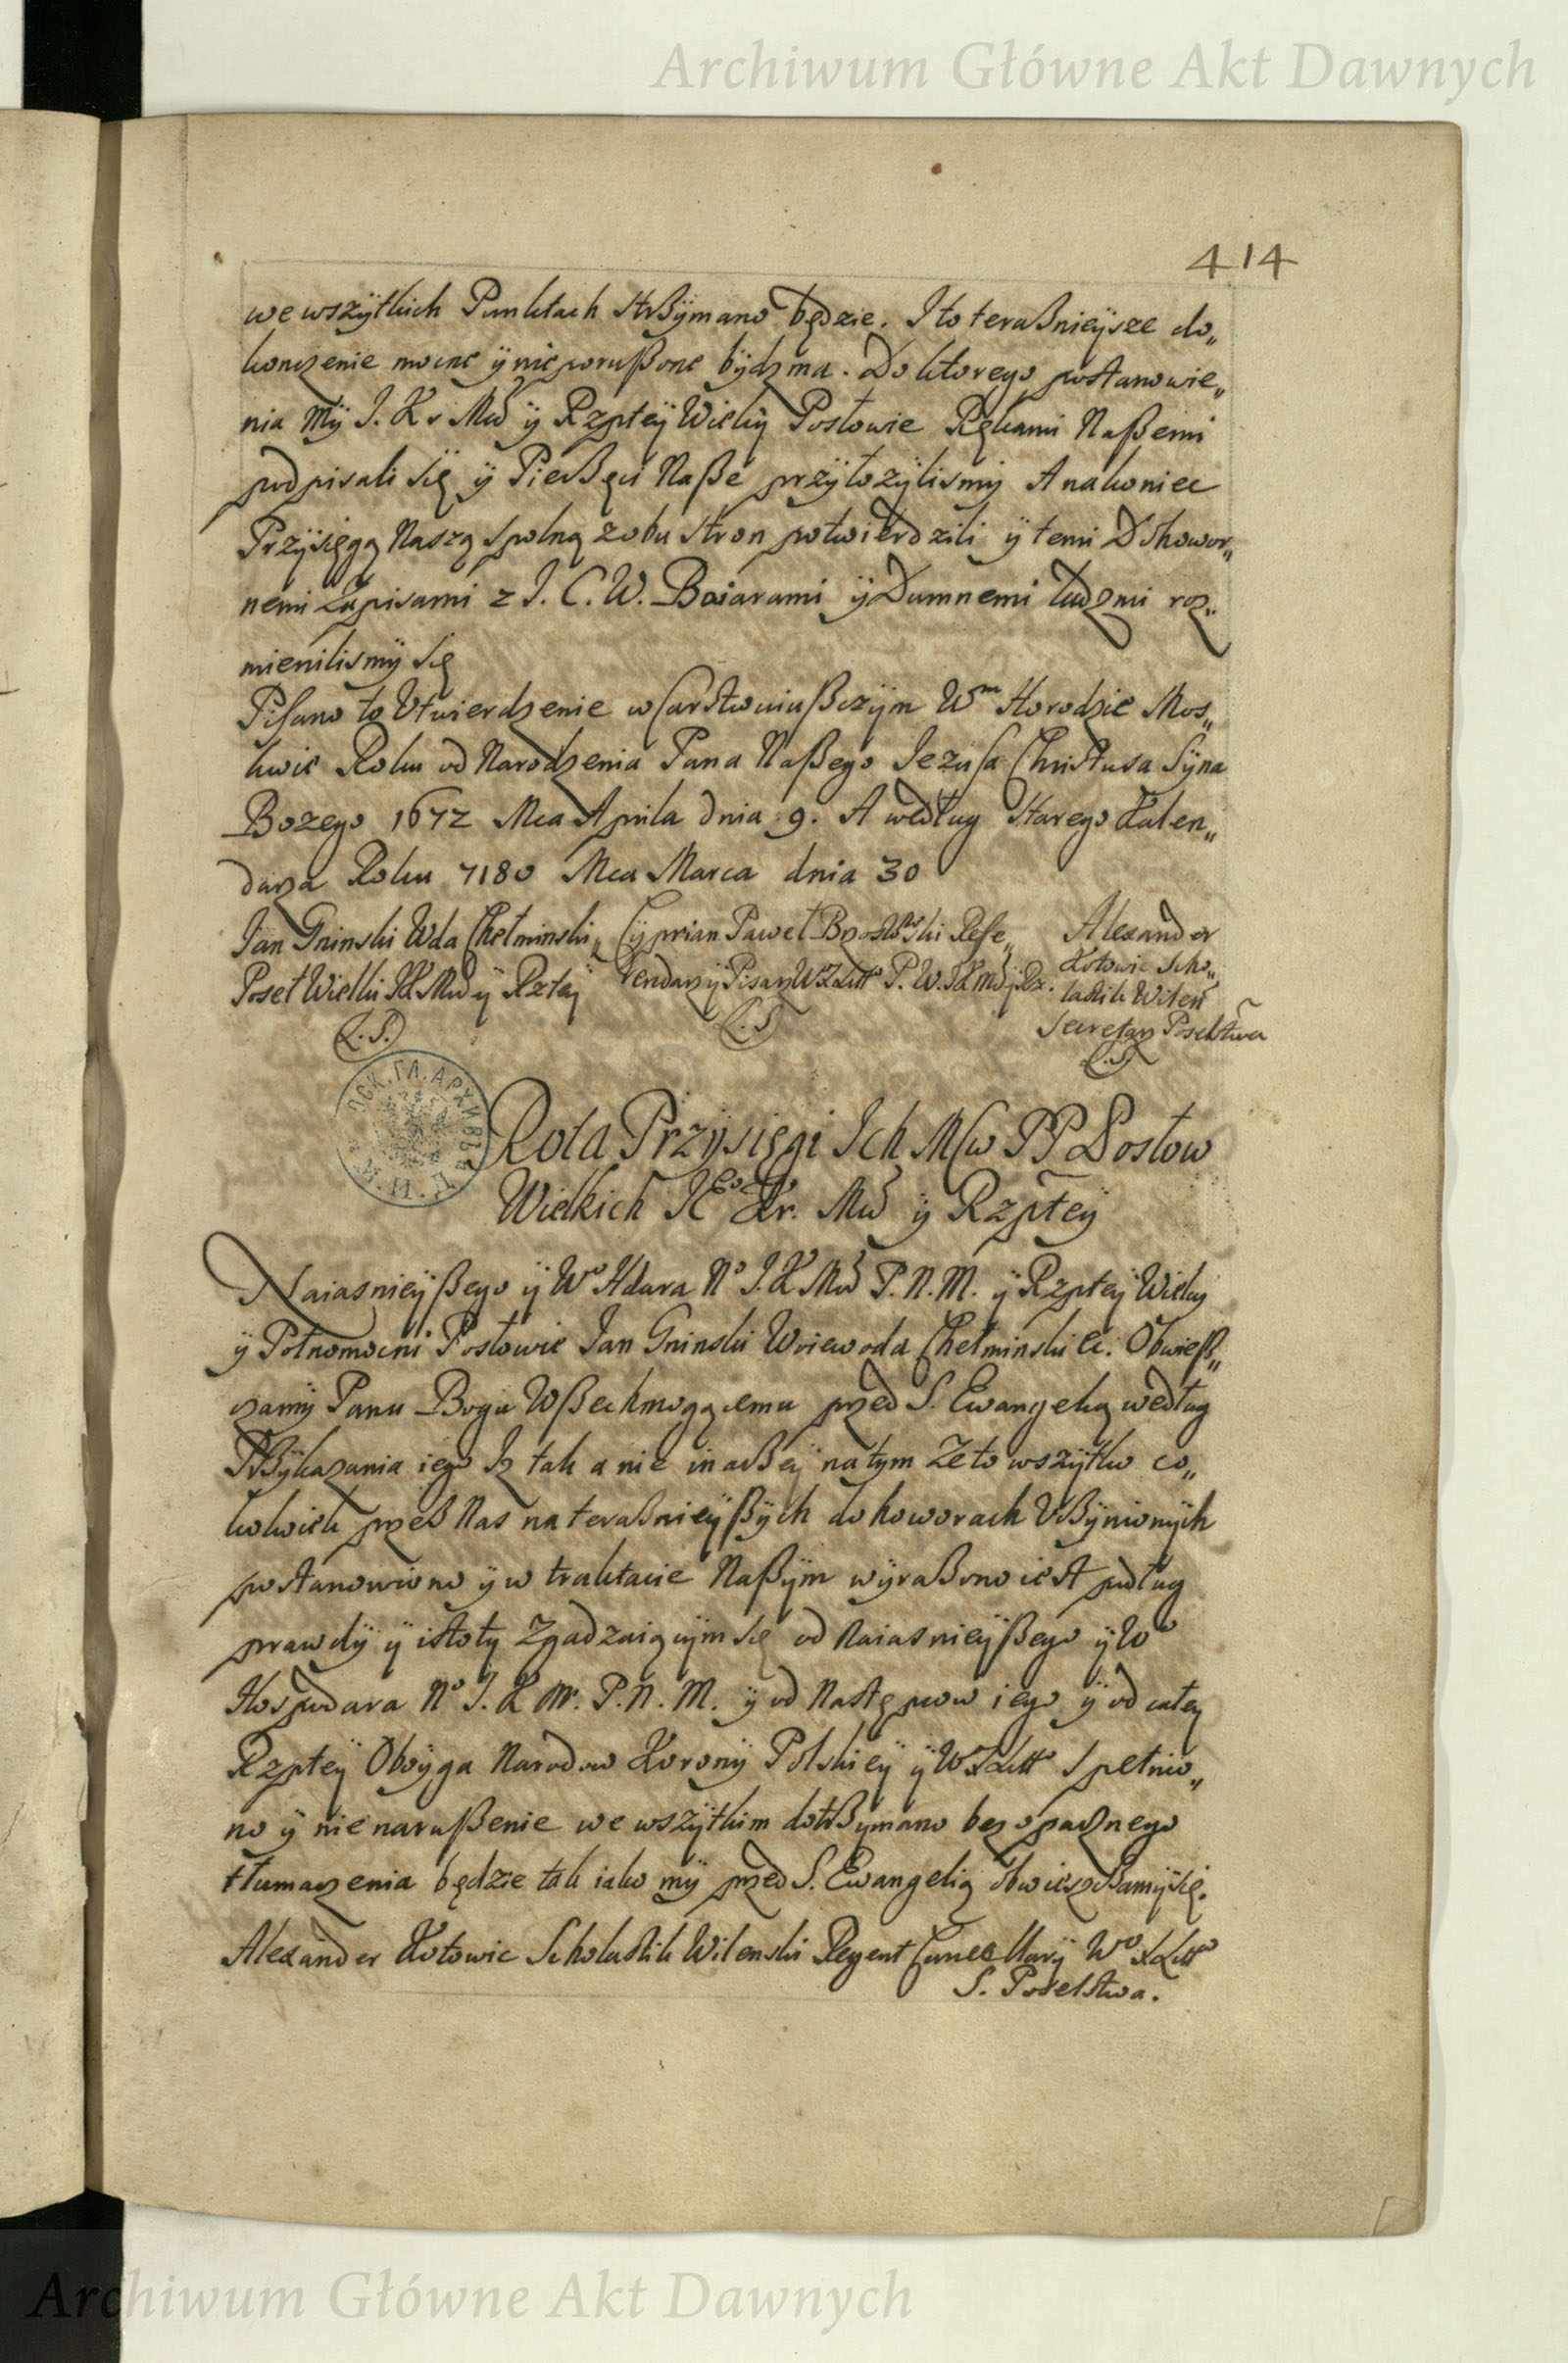 Archiwum Główne Akt Dawnych
414
we wszÿtkich Punktach strßÿmano będzie. I to teraßnieÿsze do„
konczenie mocne ÿ nie porußone bÿdz ma. Do ktorego postanowie„
nia Mÿ J. Kr Mci ÿ Rzpteÿ Wielcÿ Posłowie Rękami Naßemi
podpisali się ÿ Pieczęci Naße przÿłozÿlismÿ A nakoniec
Przÿsięgą Naszą spolną z obu stron potwierdzili ÿ temi Dohowor„
nemi Zapisami z J. C. W. Boiarami ÿ Dumnemi ludzmi roz„
mienilismÿ się
Pisano to Utwierdzenie w Carstwuiußczÿm Wm Horodzie Mos„
kwie Roku od Narodzenia Pana Naßego Jezusa Christusa Sÿna
Bozego 1672 Mca Aprila dnia 9. A według Starego Kalen„
darza Roku 7180 Mca Marca dnia 30
Jan Gninski Wda Chełminski„ Cÿprian Paweł Brzostowski Refe„ Alexander
Poseł Wielki JKMci ÿ Rzteÿ rendarz ÿ Pisarz WXLitto P. W. JKMci ÿ Rz. Kotowic Scho„
lastik Wilen
Secretarz Poselstwa
(L.S.) (L.S) (L.S)
ПСК.ГЛ.АРХИВЪ
Rota Przÿsięgi Ich Mciw PP Posłow
Wielkich JEo Kr. Mci ÿ Rzpteÿ
Naiasnieÿßego ÿ Wo Hdara No J. K Mci P. N. M. ÿ Rzpteÿ Wielcÿ
ÿ Pełnomocni Posłowie Jan Gninski Woiewoda Chełminski etc. Obwieß„
czamÿ Panu Bogu Wßechmogącemu przed S. Ewangelią według
Prßÿkazania iego Iz tak a nie inaßeÿ na tym Ze to wszÿtko co„
kolwiek przeß Nas na teraßnieÿßÿch dohoworach Ußÿnionÿch
postanowiono ÿ w traktacie Naßÿm wÿraßono iest podług
prawdÿ ÿ istotÿ Zgadzaiącÿm się od Naiasnieÿßego ÿ Wo
Hospodara No J. K M. P. N. M. ÿ od Następcow iego ÿ od całeÿ
Rzpteÿ Oboÿga Narodow Koronÿ Polskieÿ ÿ WXLitto Spełnio„
no ÿ nienarußenie we wszÿtkim dotrßymano bez opacznego
tłumaczenia będzie tak iako mÿ przed S. Ewangelią obwieszczamÿ się.
Alexander Kotowic Scholastik Wilenski Regent Cancellarÿ Wo XLitto
S. Poselstwa.
Archiwum Główne Akt Dawnych